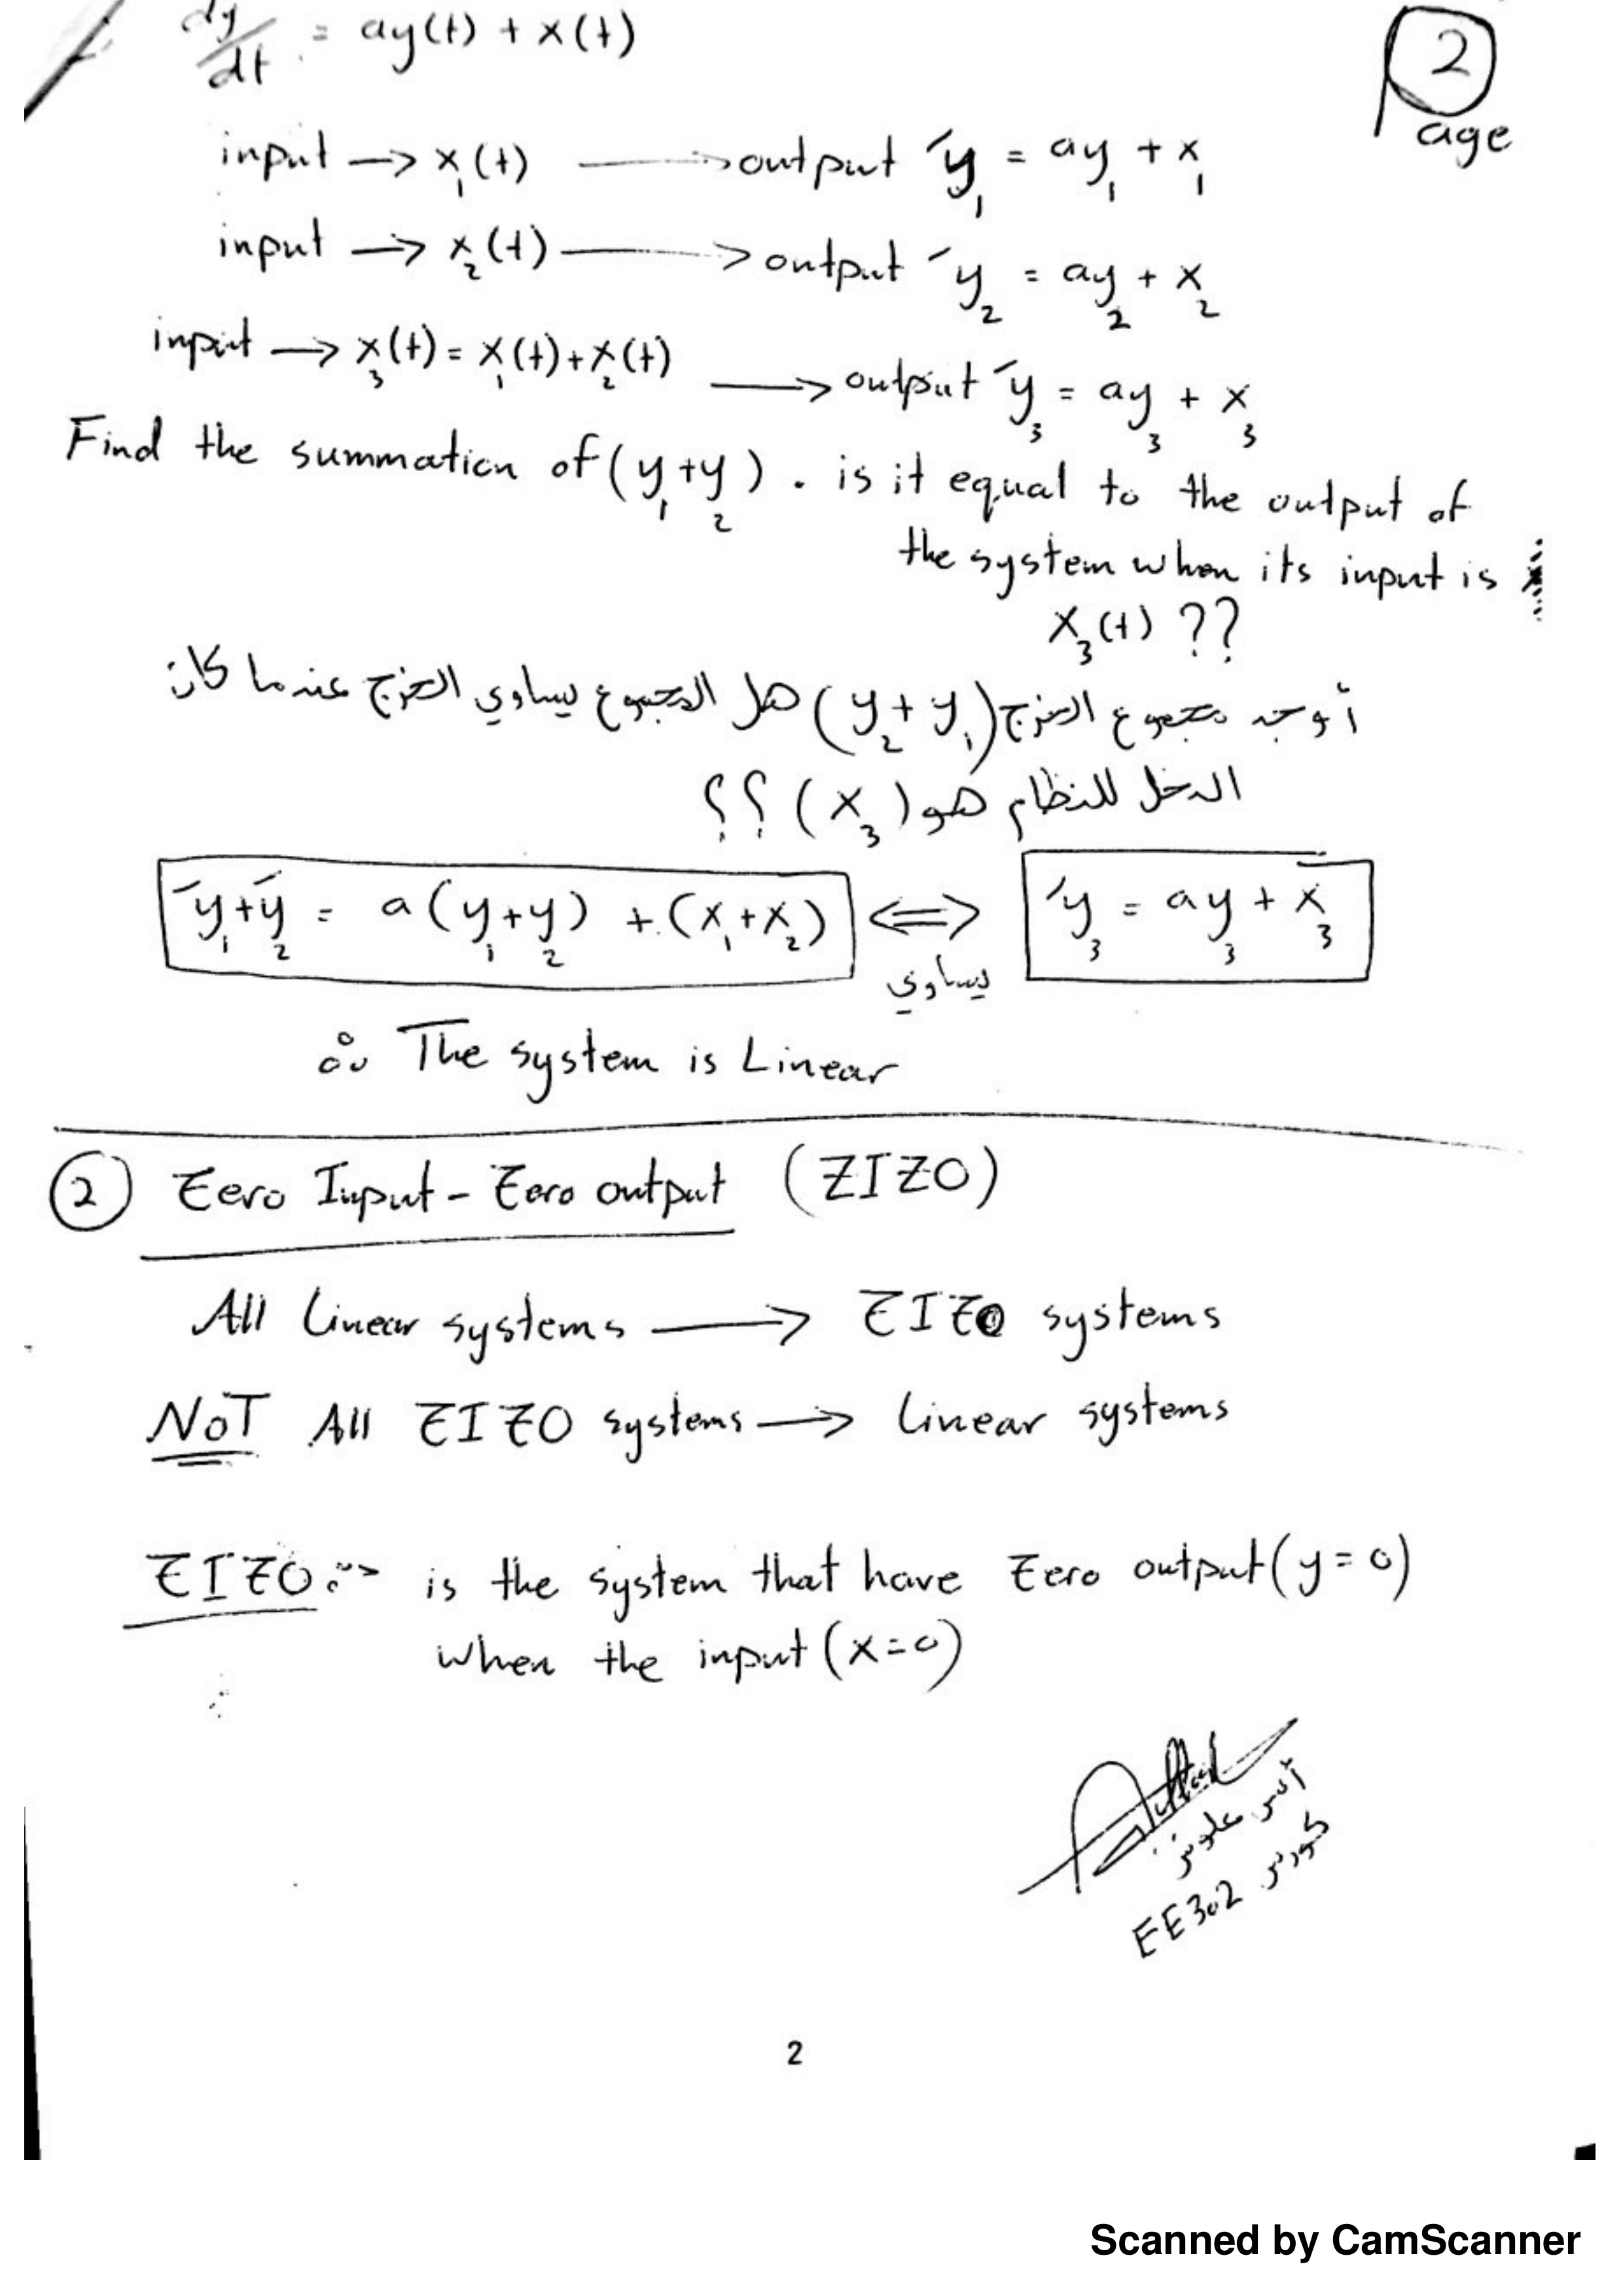 dy/dt = ay(t) + x(t)
2
Page
input → x₁(t) → output ′y₁ = ay₁ + x₁
input → x₂(t) → output ′y₂ = ay₂ + x₂
input → x₃(t) = x₁(t) + x₂(t) → output ′y₃ = ay₃ + x₃
Find the summation of (y₁+y₂). is it equal to the output of
the system when its input is
x₃(t) ??
أوجد مجموع الخرج (y₂ + y₁) هل المجموع يساوي الخرج عندما كان
الدخل للنظام هو (x₃) ؟؟
′y₁+′y₂ = a(y₁+y₂) + (x₁+x₂) ⟺ ′y₃ = ay₃ + x₃
يساوي
∴ The system is Linear
② Zero Input - Zero output (ZIZO)
All Linear systems → ZIZO systems
NOT All ZIZO systems → Linear systems
ZIZO:-> is the system that have Zero output (y=0)
when the input (x=0)
كورس EE302
2
Scanned by CamScanner